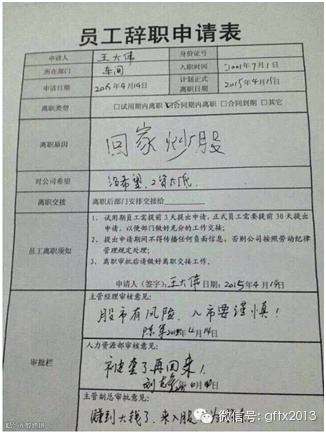 员工辞职申请表
申请人 王大伟 身份证号
所在部门 车间 入职时间 2001年9月1
申请日期 2015年4月14日 计划正式离职日期 2015年4月15日
离职类型 □试用期内离职 ☑合同期内离职 □合同到期 □其它
离职原因 回家炒股
对公司希望 没希望,工资太低.
离职交接 离职后部门安排交接给
员工离职须知
1、试用期员工需提前3天提出申请,正式员工需要提前30天提出
申请,以便部门做好充分的工作交接;
2、提出申请期间不得传播任何负面信息,否则公司按照劳动纪律
管理规定处理;
3、离职审批后请做好离职交接工作。
申请人(签字):王大伟 日期:2015年4月14日
审批栏
主管经理审核意见:
股市有风险,入市要谨慎!
人力资源部审核意见:
被套了再回来!
主管副总审批意见:
赚到大钱了,来入股
微信号: gftx2013